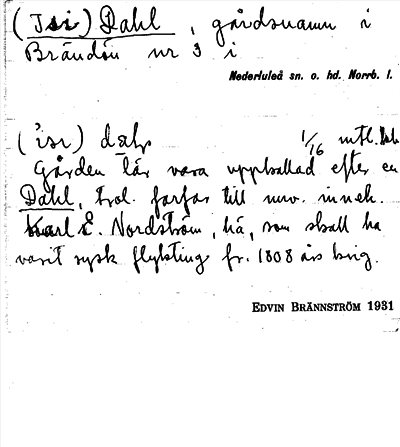 (Isi) Dahl, gårdsnamn i
Brändön nr 3 i
Nederluleå sn. o. hd. Norrb. l.
('isi) dal
1/16 mtl.
Gården lär vara uppkallad efter en
Dahl, trol. farfar till nuv. inneh.
Karl E. Nordström, hä, som skall ha
varit rysk flykting fr. 1808 års krig.
EDVIN BRÄNNSTRÖM 1931